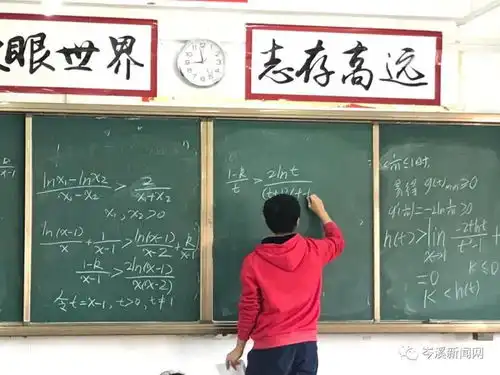 眼世界
志存高远
lnx₁-lnx₂/x₁-x₂ > 2/x₁+x₂
x₁,x₂>0
ln(x-1)/x + 1/x-1 > ln(x-1)/x-2 + k/x-1
1-k/x-1 > 2ln(x-1)/x(x-2)
t=x-1, t>0, t≠1
1-k/t > 2lnt/(t+1)(t-1
g(t)min≥0
=-2ln
≥0
h(t)>lim
-2tlnt/t²-1
=0
k≤0
k<h(t)
岑溪新闻网